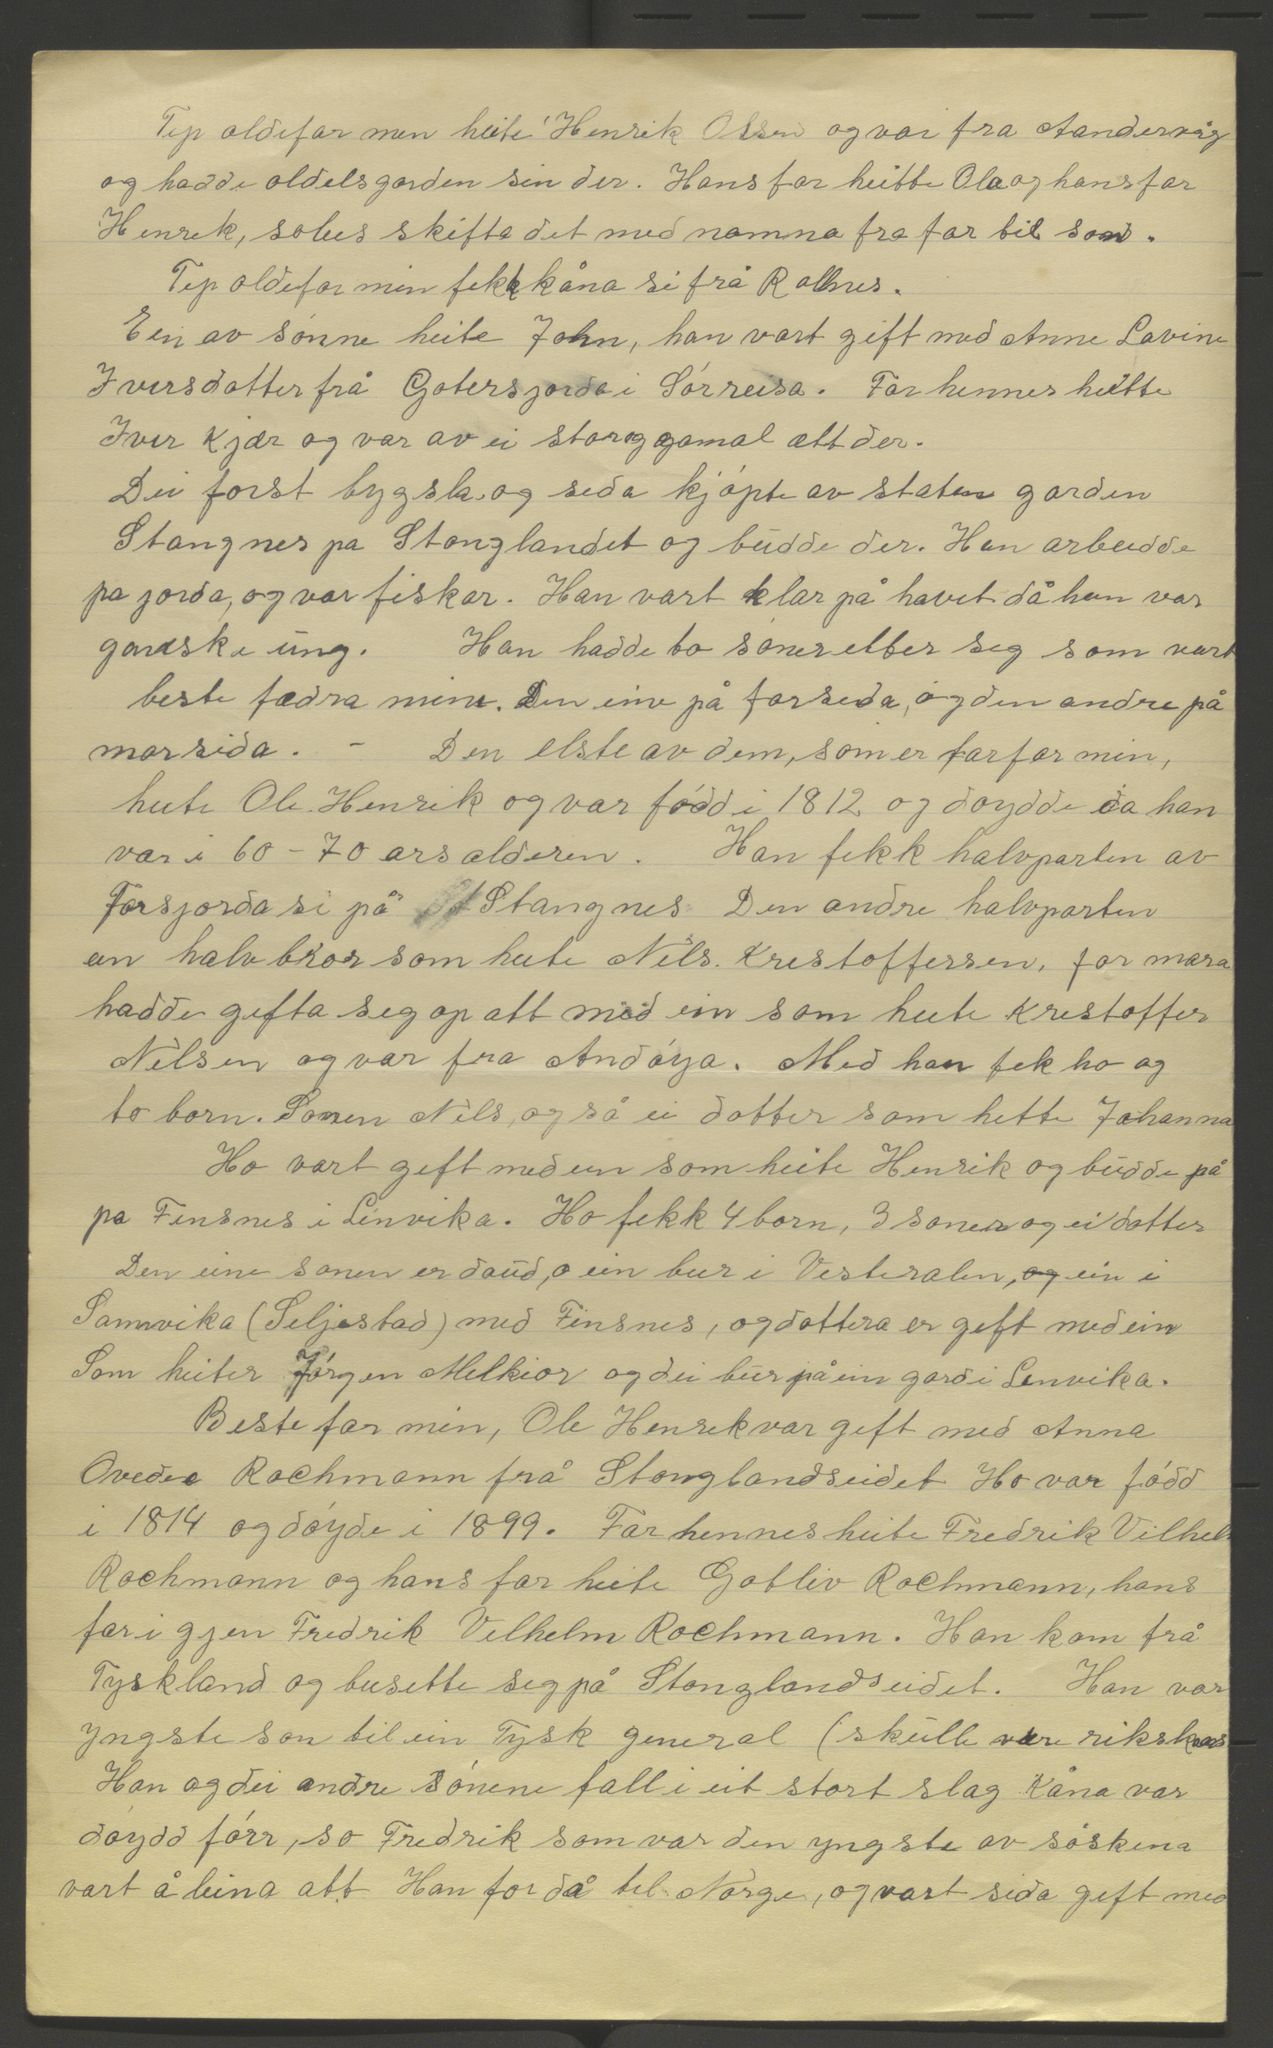 Tip oldefar men heite Henrik Olsen og var fra Aandervåg
og hadde oldelsgarden sin der. Hans far heitte Ola og hans far
Henrek, soleis skifta det med namna fra far til son.
Tip oldefar min fekk kåna si frå Rollnes.
Ein av sønne heite John, han vart gift med Anne Lovine
Iversdatter frå Gotersjorda i Sørreisa. Far hennes heitte
Iver Kjær og var av ei stor og gamal ætt der.
Dei først bygsla og seda kjøpte av staten garden
Stangnes pa Stonglandet og budde der. Han arbeidde
pa jorda, og var fiskar. Han vart klar på havet då han var
ganske ung. Han hadde to søner etter seg som vart
beste fædra mine. Den eine på farseda, og den andre på
morsida. - Den elste av dem, som er farfar min,
heite Ole Henrik og var fødd i 1812 og døydde da han
var i 60-70 ars alderen. Han fekk halvparten av
Farsjorda si på Stangnes Den andre halvparten
en halvbror som heite Nils Krestoffersen, for mora
hadde gefta seg op att med ein som heite Krestoffer
Nilsen og var fra Andøya. Med han fek ho og
to born. Sonen Nils, og så ei dotter som hette Johanna
Ho vart geft med en som heite Henrik og budde på
pa Finsnes i Linvika. Ho fekk 4 born, 3 soner og ei dotter
Den eine sonen er daud, o ein bur i Vesteralen, og ein i
Sannvika (Seljestad) med Finsnes, og dottera er geft med ein
Som heiter Jørgen Melkior og dei bur på ein gard i Lenvika.
Beste far min, Ole Henrek var geft med Anna
Ovedea Rochmann frå Stonglandseidet Ho var fødd
i 1814 og døyde i 1899. Far hennes heite Fredrik Vilhelm
Rochmann og hans far heite Gotliv Rochmann, hans
far i gjen Fredrik Velhelm Rochmann. Han kom frå
Tyskland og busette seg på Stonglandseidet. Han var
yngste son til ein Tysk general (skulle være rikskans
Han og dei andre sønene fall i eit stort slag Kåna var
døydd førr, so Fredrik som var den yngste av søskena
vart å leina att Han for då tel Norge, og vart sida geft med